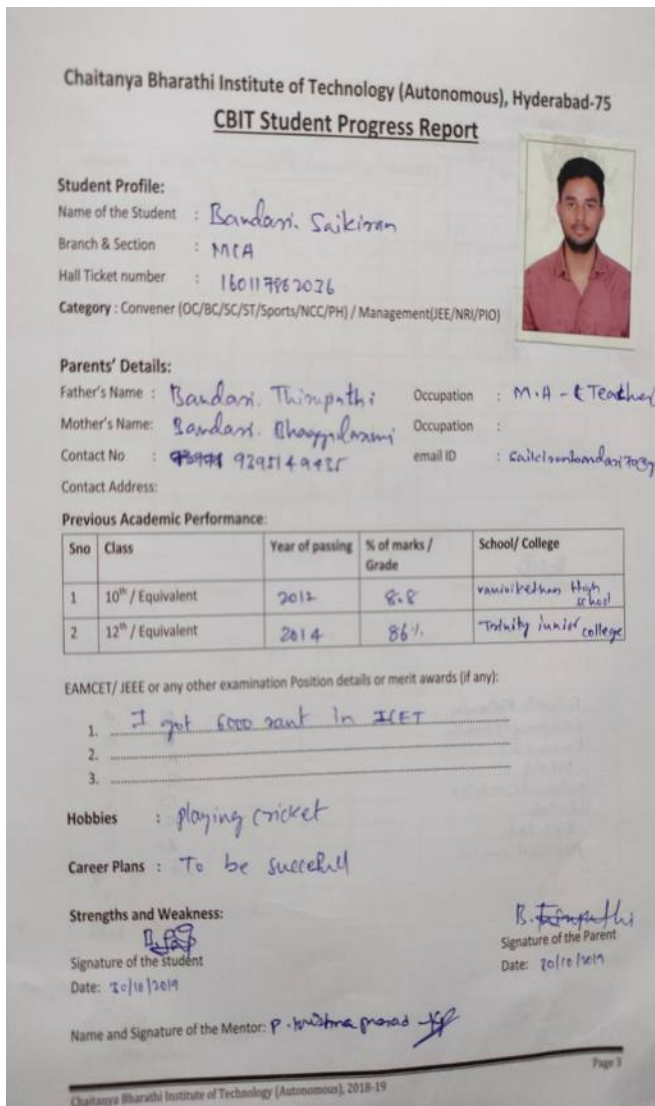 Chaitanya Bharathi Institute of Technology (Autonomous), Hyderabad-75
CBIT Student Progress Report
Student Profile:
Name of the Student : Bandari. Saikiran
Branch & Section : MCA
Hall Ticket number : 160117862036
Category : Convener (OC/BC/SC/ST/Sports/NCC/PH) / Management(JEE/NRI/PIO)
Parents' Details:
Father's Name : Bandari. Thirupathi Occupation : M.A - Teacher
Mother's Name: Bandari. Bhagyalaxmi Occupation :
Contact No : 9295149435 email ID :
Contact Address:
Previous Academic Performance:
Sno Class Year of passing % of marks / Grade School/ College
1 10th / Equivalent 2012 8.8 High school
2 12th / Equivalent 2014 86% Trinity junior college
EAMCET/ JEEE or any other examination Position details or merit awards (if any):
1. I got 6000 rank in ICET
2.
3.
Hobbies : playing cricket
Career Plans : To be succefull
Strengths and Weakness:
B. Thirupathi
Signature of the student Signature of the Parent
Date: 30/10/2019 Date: 30/10/2019
Name and Signature of the Mentor: P. Krishna prasad
Page 3
Chaitanya Bharathi Institute of Technology (Autonomous), 2018-19